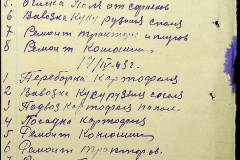 5. Очистка Полей от сорняков
6 Вывозка Кукурузных стеблей
7 Ремонт тракторов и плугов
8 Ремонт Конюшни
17/IV-43 г.
1 Переборка Картофеля
2 Вывозка Кукурузы
3 Подвозка картофеля на поле
4 Посадка картофеля
5 Ремонт Конюшни
6 Ремонт тракторов.